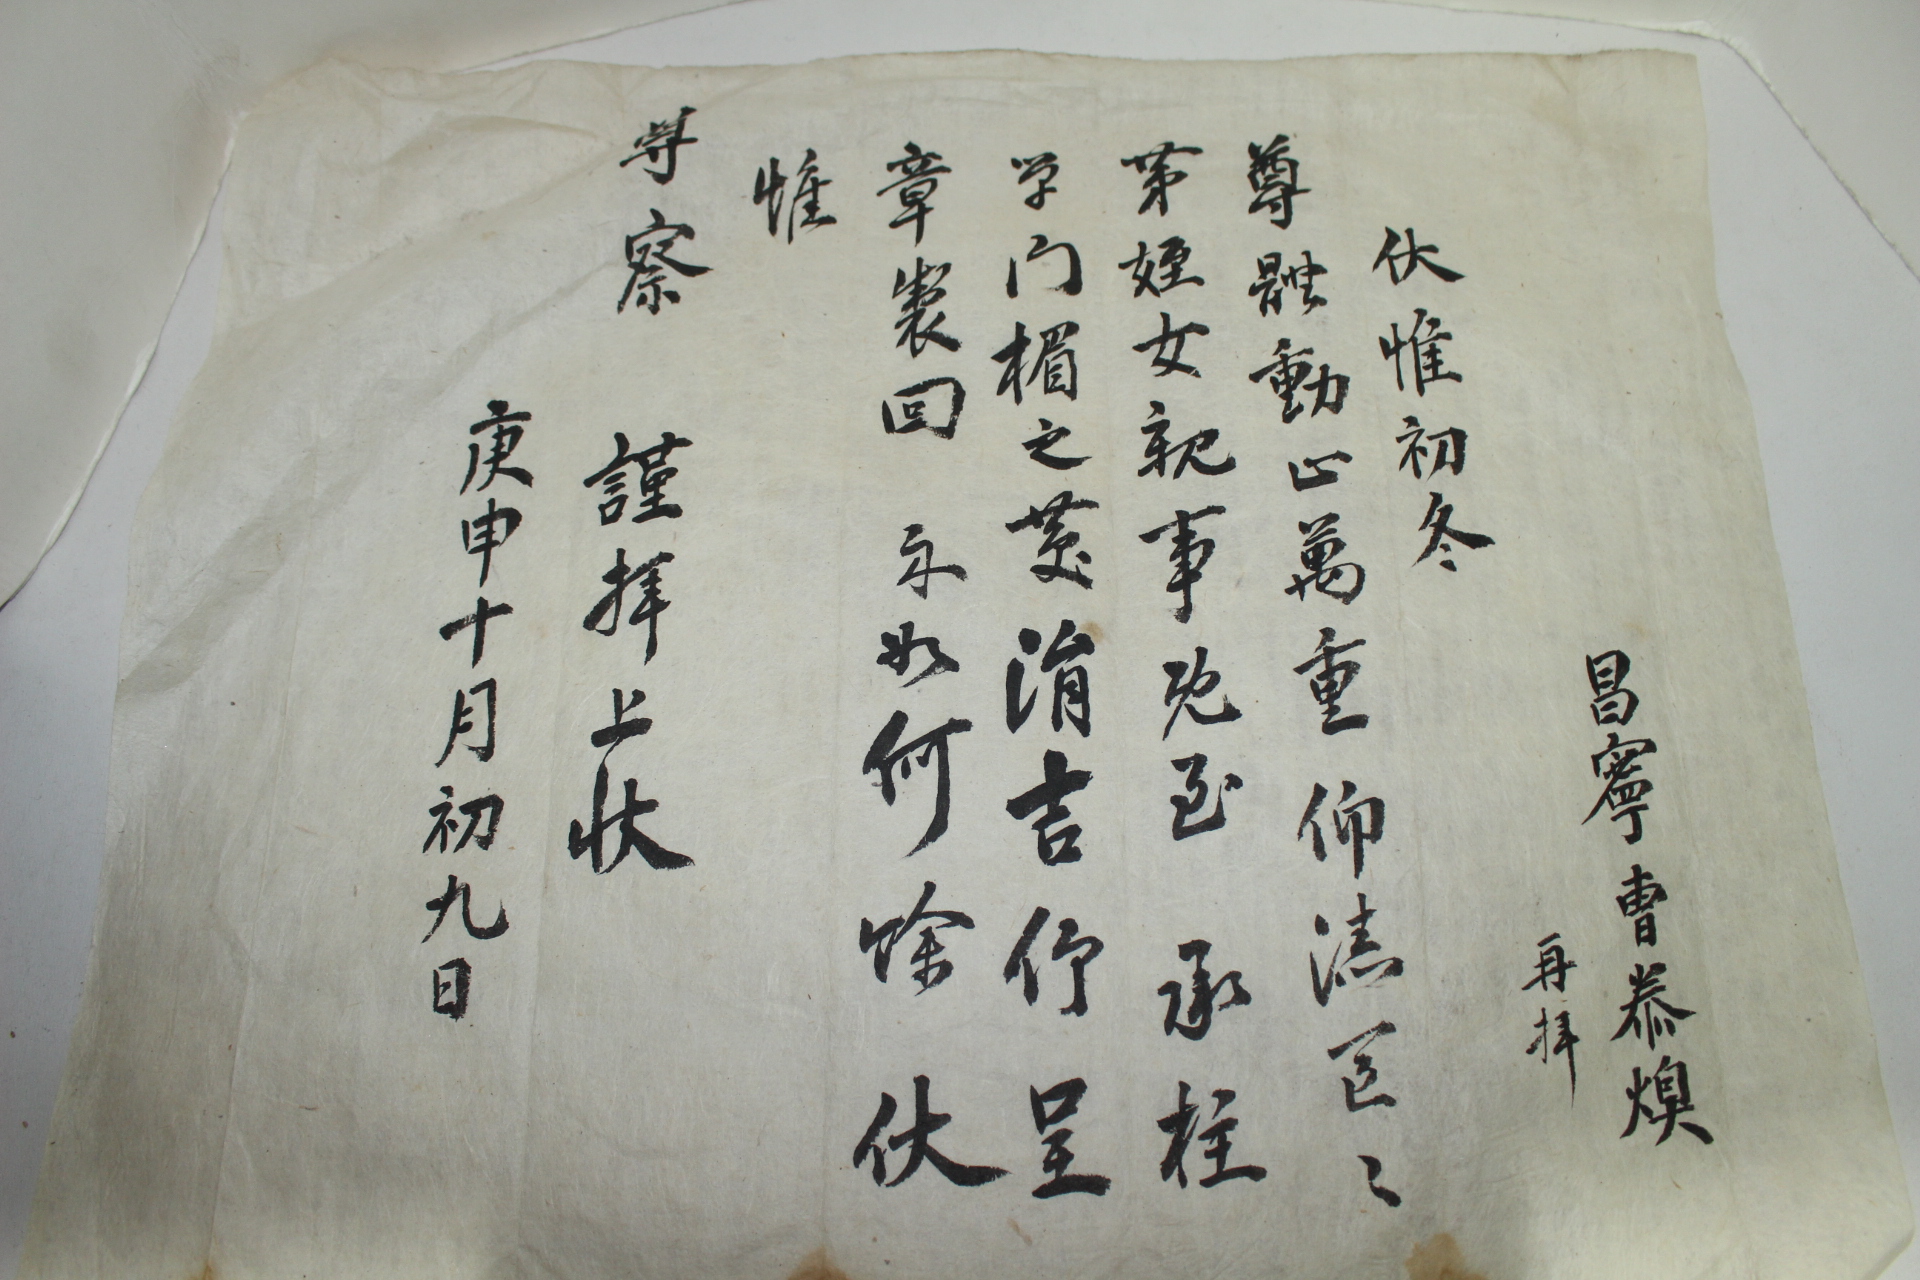 昌寧曺泰煥
再拜
伏惟初冬
尊體動止萬重仰溸區〻
第姪女親事旣至 承柱
单门楣之慶涓吉仰呈
章製回 示如何餘 伏
惟
尊察 謹拜上狀
庚申十月初九日